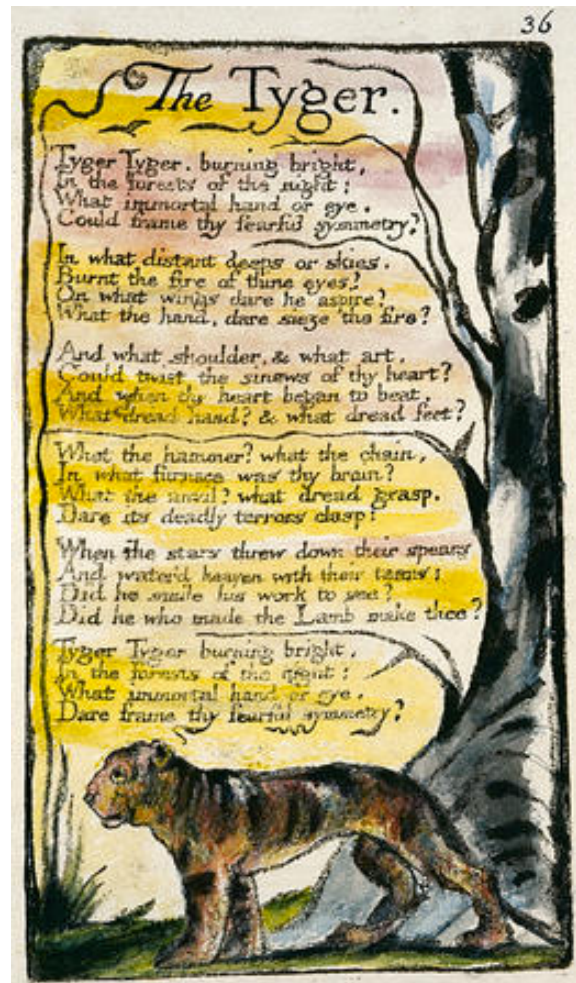 36
The Tyger.
Tyger Tyger. burning bright,
In the forests of the night;
What immortal hand or eye.
Could frame thy fearful symmetry?
In what distant deeps or skies.
Burnt the fire of thine eyes?
On what wings dare he aspire?
What the hand, dare sieze the fire?
And what shoulder, & what art.
Could twist the sinews of thy heart?
And when thy heart began to beat.
What dread hand? & what dread feet?
What the hammer? what the chain,
In what furnace was thy brain?
What the anvil? what dread grasp.
Dare its deadly terrors clasp!
When the stars threw down their spears
And water'd heaven with their tears:
Did he smile his work to see?
Did he who made the Lamb make thee?
Tyger Tyger burning bright.
In the forests of the night:
What immortal hand or eye.
Dare frame thy fearful symmetry?